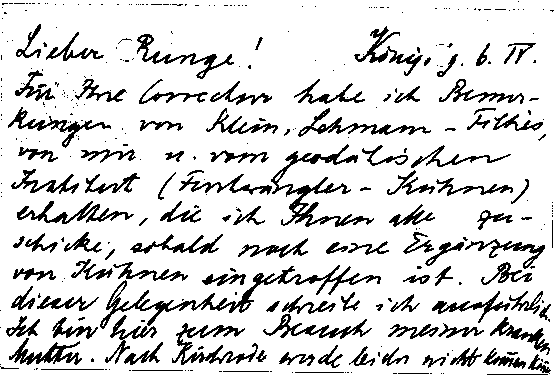 Lieber Runge! Königsbg. 6. IV.
Für Ihre Correctur habe ich Bemer-
kungen von Klein, Lehmann-Filhés,
von mir u. vom geodätischen
Institut (Furtwängler - Kühnen)
erhalten, die ich Ihnen alle zu-
schicke, sobald noch eine Ergänzung
von Kühnen eingetroffen ist. Bei
dieser Gelegenheit schreibe ich ausführlich.
Ich bin hier zum Besuch meiner kranken
Mutter. Nach Kirchrode werde leider nicht kommen